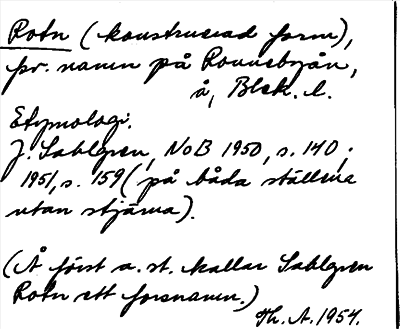 Rotn (konstruerad form),
fr. namn på Ronnebyån,
å, Blek. l.
Etymologi.
J. Sahlgren, NoB 1950, s. 140;
1951, s. 159 (på båda ställena
utan stjärna).
(Å först a. st. kallar Sahlgren
Rotn ett forsnamn.)
Th. A. 1954.